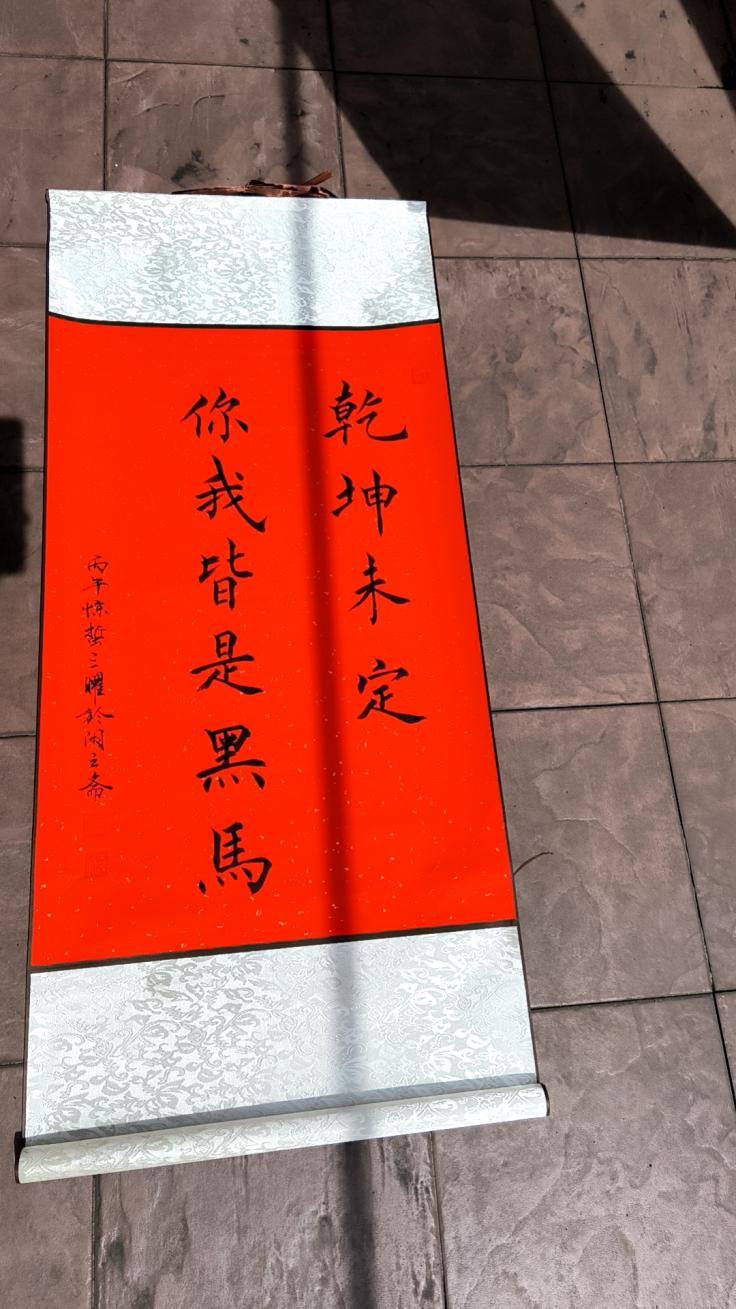 乾坤未定
你我皆是黑馬
丙午惊蟄三曜於闲云斋